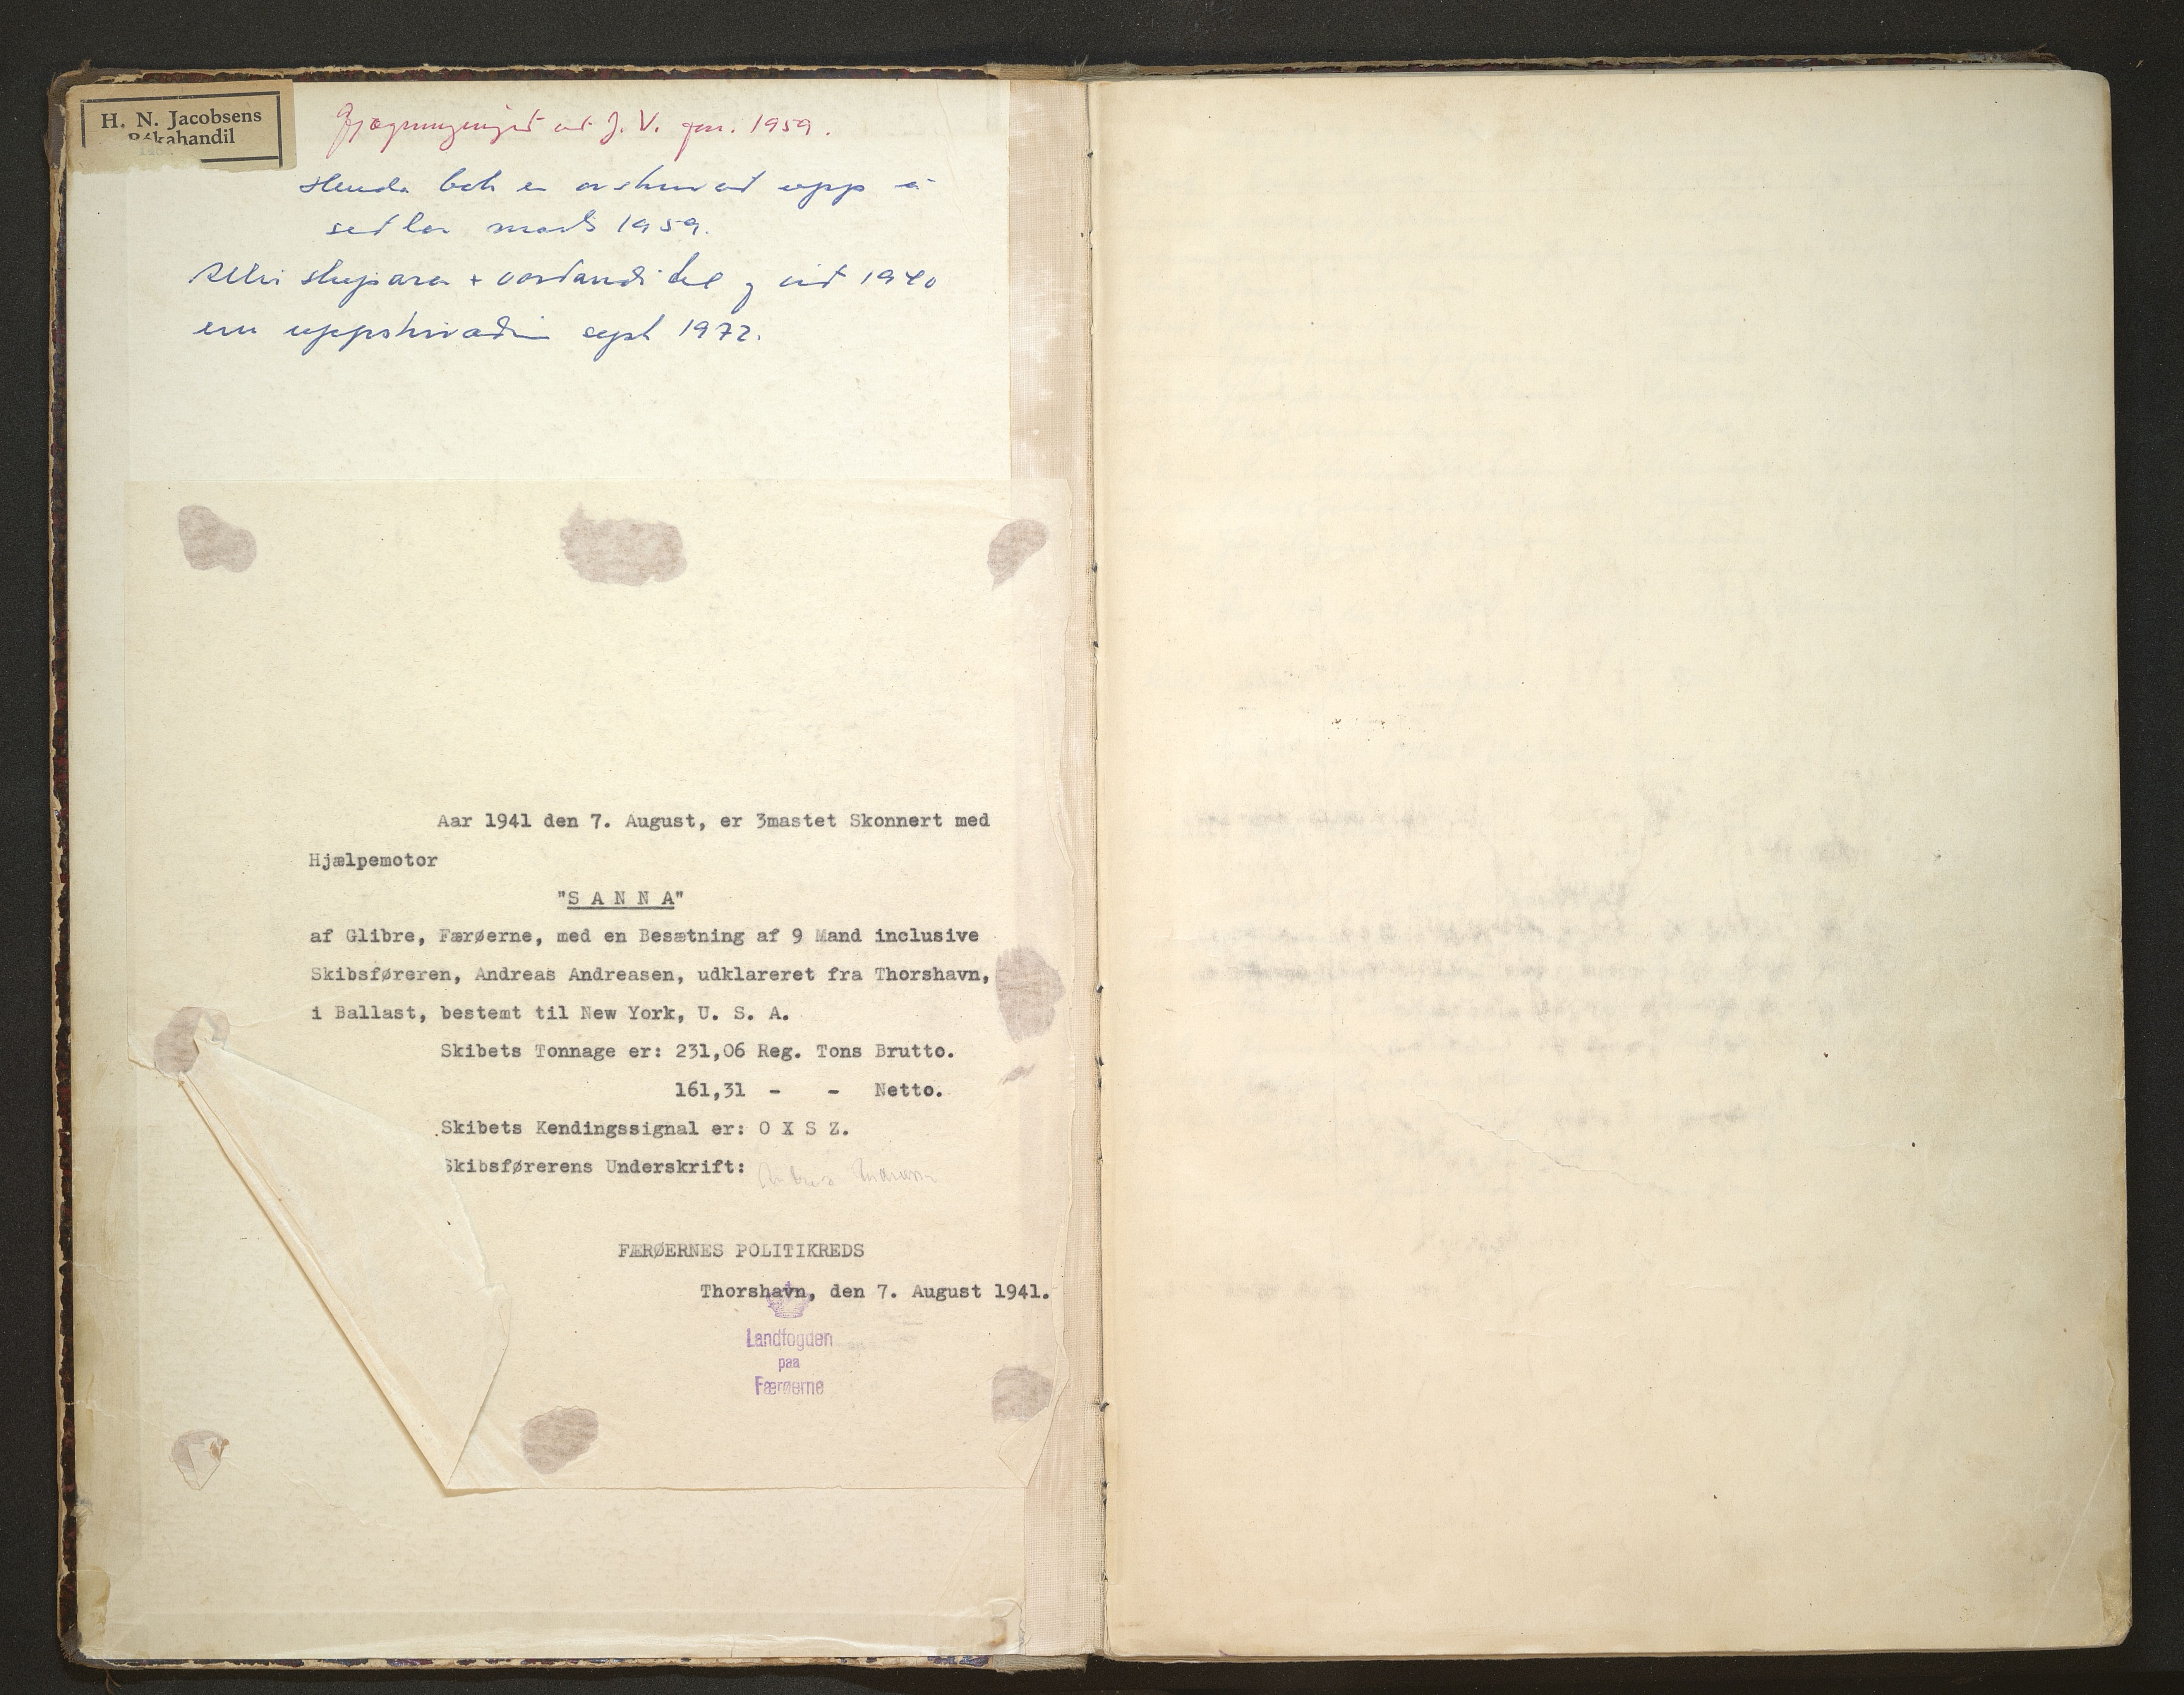 H. N. Jacobsens
Bókahandil
J. V. jan. 1959.
Henda bók er avskrivað upp á
sedlar mars 1959.
skiparar + vid 1940
eru uppskrivaðir sept 1972.
Aar 1941 den 7. August, er 3mastet Skonnert med
Hjælpemotor
"S A N N A"
af Glibre, Færøerne, med en Besætning af 9 Mand inclusive
Skibsføreren, Andreas Andreasen, udklareret fra Thorshavn,
i Ballast, bestemt til New York, U. S. A.
Skibets Tonnage er: 231,06 Reg. Tons Brutto.
161,31 - - Netto.
Skibets Kendingssignal er: O X S Z.
Skibsførerens Underskrift:
FÆRØERNES POLITIKREDS
Thorshavn, den 7. August 1941.
Landfogden
paa
Færøerne